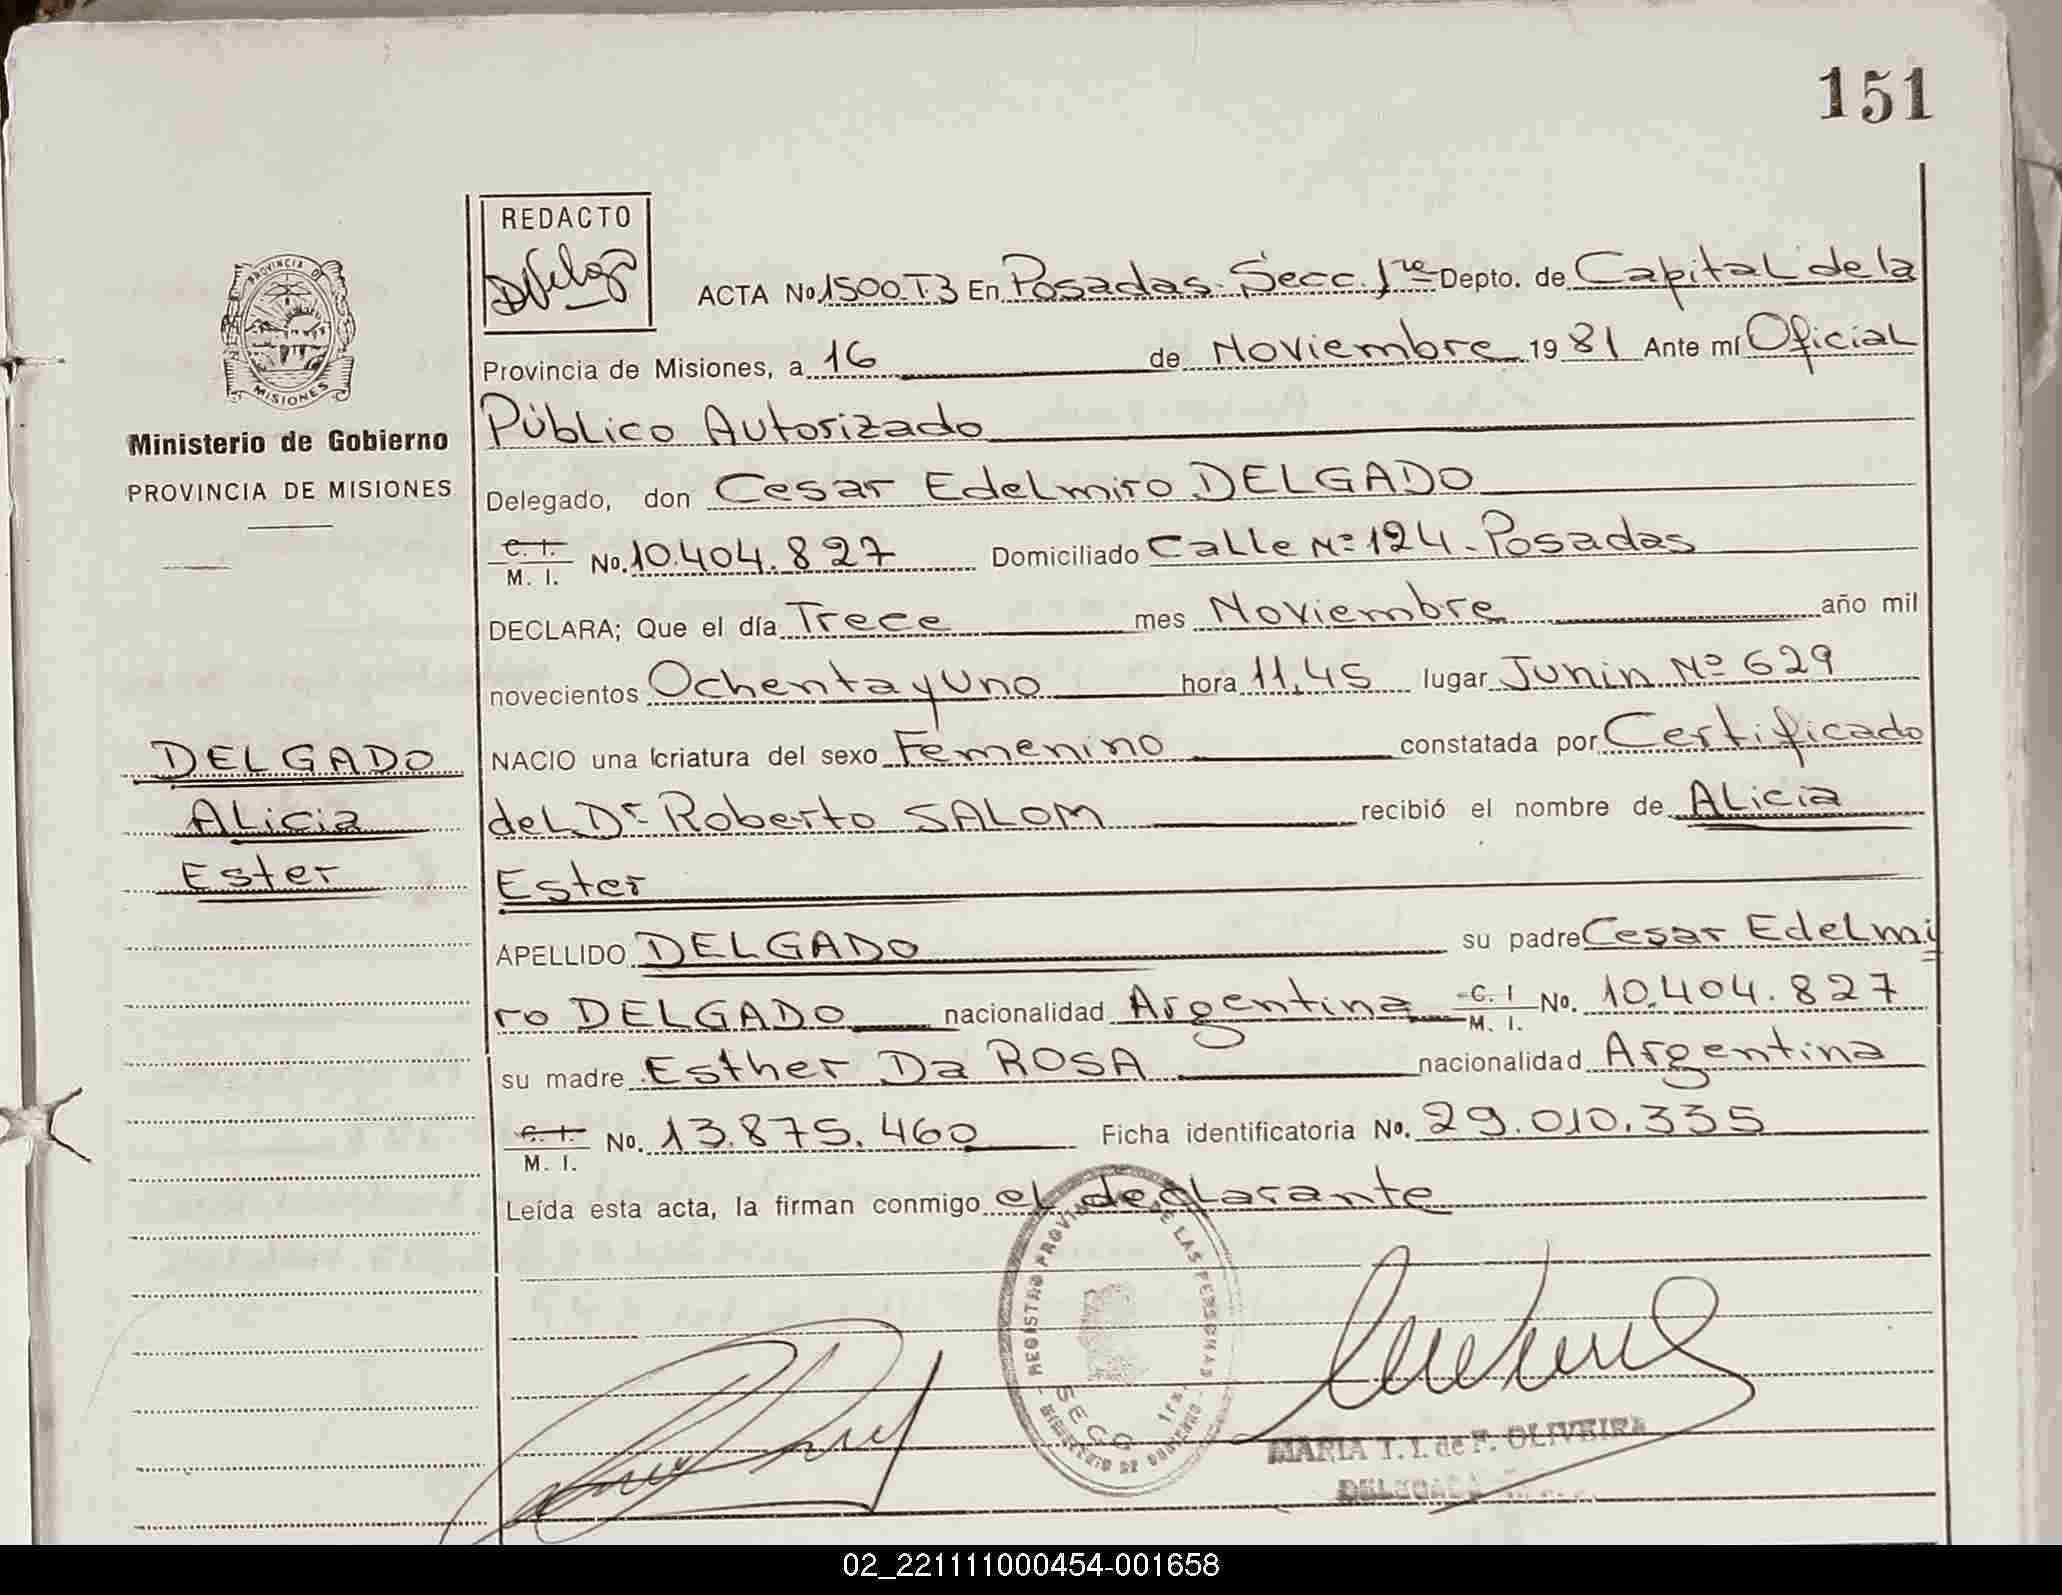 151
REDACTO
ACTA No. 1500.T3 En Posadas. Secc. 1ra Depto. de Capital de la
Provincia de Misiones, a 16 de Noviembre 1981 Ante mí Oficial
Público Autorizado
Delegado, don Cesar Edelmiro DELGADO
C. I. M. I. No. 10.404.827 Domiciliado Calle Nº 124. Posadas
DECLARA; Que el día Trece mes Noviembre año mil
novecientos Ochenta y Uno hora 11,45 lugar Junin Nº 629
NACIO una criatura del sexo Femenino constatada por Certificado
del Dr Roberto SALOM recibió el nombre de Alicia
Ester
APELLIDO DELGADO su padre Cesar Edelmi
ro DELGADO nacionalidad Argentina C. I M. I. No. 10.404.827
su madre Esther Da ROSA nacionalidad Argentina
C. I. M. I. No. 13.875.460 Ficha identificatoria No. 29.010.335
Leída esta acta, la firman conmigo el declarante
PROVINCIA DE
MISIONES
Ministerio de Gobierno
PROVINCIA DE MISIONES
DELGADO
Alicia
Ester
REGISTRO PROVIN DE LAS PERSONAS
SECC 1ra.
MINISTERIO DE GOBIERNO
MARIA T. I. de F. OLIVEIRA
DELEGADA
02_221111000454-001658